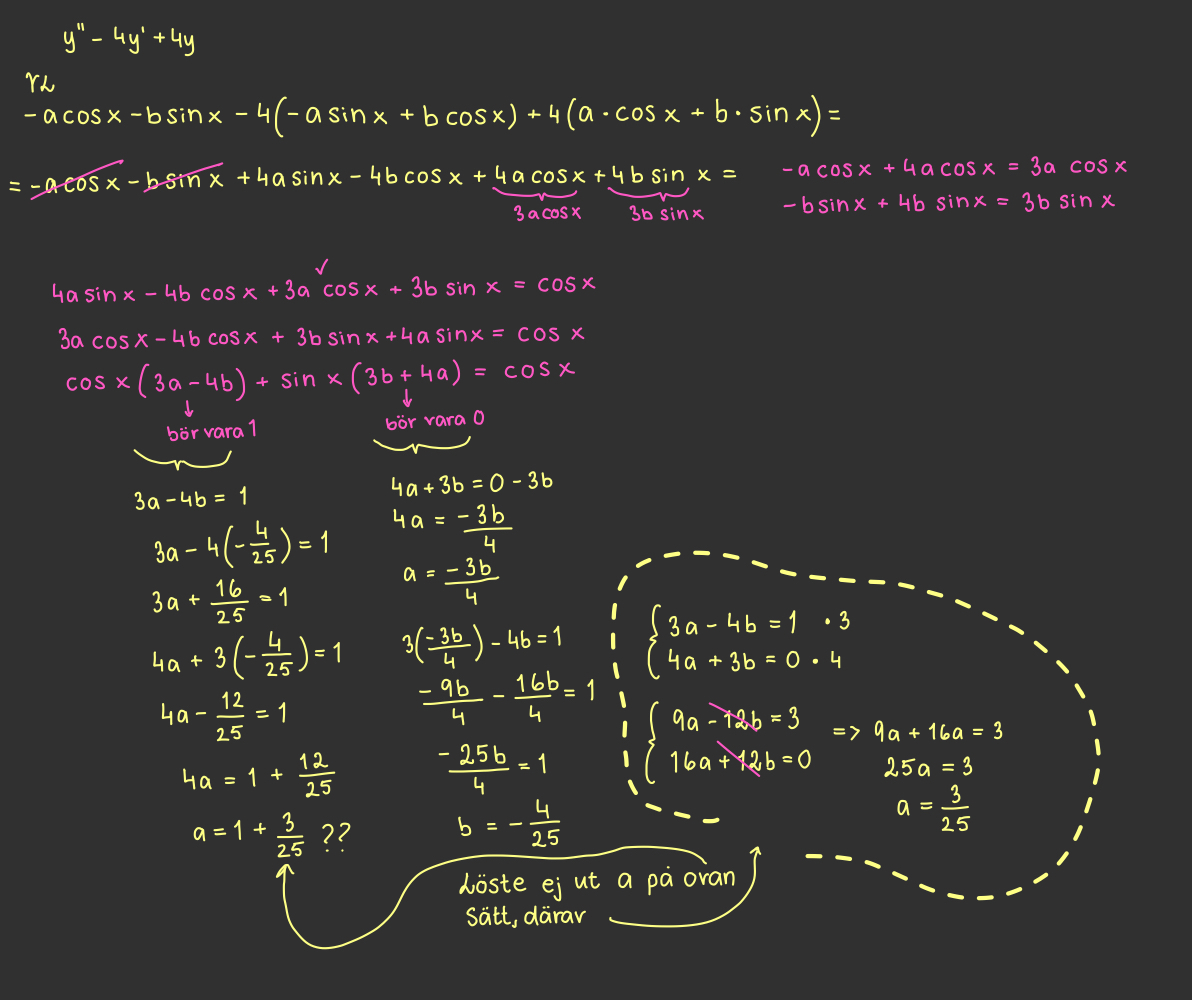 y'' - 4y' + 4y
VL
-a cos x - b sin x - 4(-a sin x + b cos x) + 4(a · cos x + b · sin x) =
= -a cos x - b sin x + 4a sin x - 4b cos x + 4a cos x + 4b sin x =
3a cos x 3b sin x
-a cos x + 4a cos x = 3a cos x
-b sin x + 4b sin x = 3b sin x
✓
4a sin x - 4b cos x + 3a cos x + 3b sin x = cos x
3a cos x - 4b cos x + 3b sin x + 4a sin x = cos x
cos x (3a - 4b) + sin x (3b + 4a) = cos x
↓ ↓
bör vara 1 bör vara 0
3a - 4b = 1
3a - 4(-4/25) = 1
3a + 16/25 = 1
4a + 3(-4/25) = 1
4a - 12/25 = 1
4a = 1 + 12/25
a = 1 + 3/25 ??
4a + 3b = 0 - 3b
4a = -3b/4
a = -3b/4
3(-3b/4) - 4b = 1
-9b/4 - 16b/4 = 1
-25b/4 = 1
b = -4/25
Löste ej ut a på ovan
sätt, därav
3a - 4b = 1 · 3
4a + 3b = 0 · 4
9a - 12b = 3
16a + 12b = 0
=> 9a + 16a = 3
25a = 3
a = 3/25